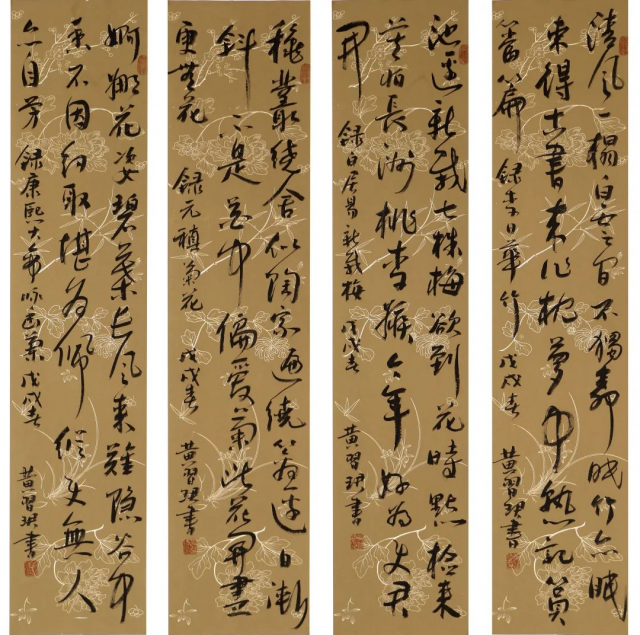 清風一榻白雲間不獨眠竹亦眠
束得古書來作枕夢中熟記篔
簹篇 錄李日華竹 戊戌春 黃習珙書
池邊新栽七株梅欲到花時點檢來
莫怕長洲桃李嫉今年好為使君
開 錄白居易新栽梅 戊戌春 黃習珙書
秋叢繞舍似陶家遍繞籬邊日漸
斜不是花中偏愛菊此花開盡
更無花 錄元稹菊花 戊戌春 黃習珙書
婀娜花姿碧葉長風來難隱谷中
香不因紉取堪為佩縱使無人
亦自芳 錄康熙大帝詠幽蘭 戊戌春 黃習珙書